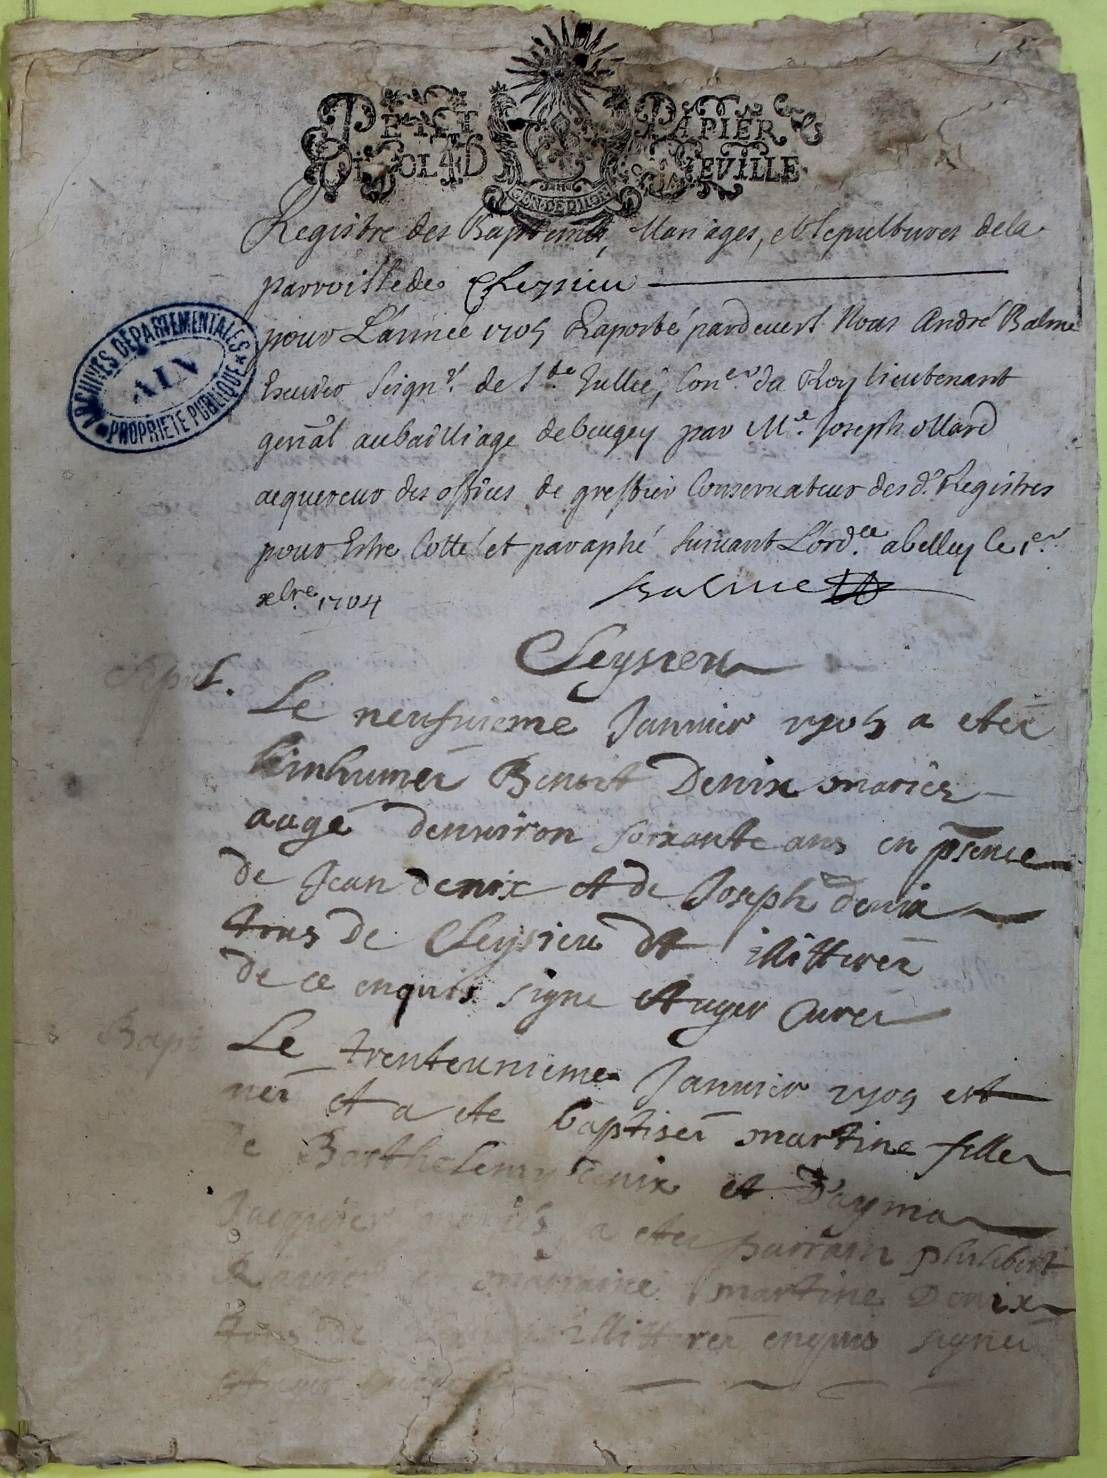 PETIT PAPIER
GEN.DE DIION
Registre des Baptemes, Mariages, et Sepultures dela
parroisse de Cleysieu
pour L'année 1705 Raporté pardevant Nous André Balme
Escuier Seignr. de Ste Jullie, Coner du Roy lieutenant
genãl au bailliage de beugey par Me. Joseph ollard
acquereur des offices de greffier Conservateur des d. Registres
pour Estre Cotté et paraphé suivant L'ordce. a belley le 1er.
xbre. 1704
Balme
Cleysieu
Sepul.
Le neufvieme Janvier 1705 a eter
Einhumer Benoit Denix marier
auge denviron soixante ans en psence
de Jean denix et de Joseph denix
tous de Cleysieu illitterer
de ce enquis signe Auger Curer
Bapt
Le trenteunieme Janvier 1705 est
ner et a ete baptiser martine fille
de Barthelemy denix et D'ayma
Jacquier maries, a eter parrain philibert
marraine martine Denix
tous de illitterer enquis signer
Auger
ARCHIVES DÉPARTEMENTALES
AIN
PROPRIÉTÉ PUBLIQUE